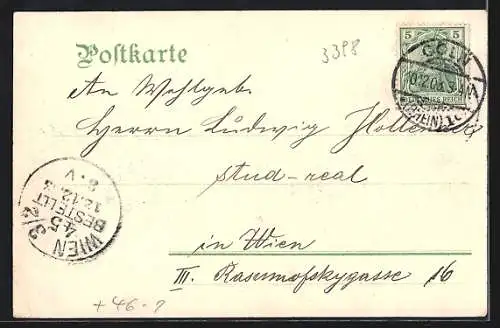 Postkarte
3398
5 5
DEUTSCHES REICH
CÖLN
10.12.03
(RHEIN)
An Wohlgeb.
Herrn Ludwig
stud-real
in Wien
III. Rasumofskygasse 16
WIEN 3/2
45
BESTELLT
12.12.03
8.V
+46-?